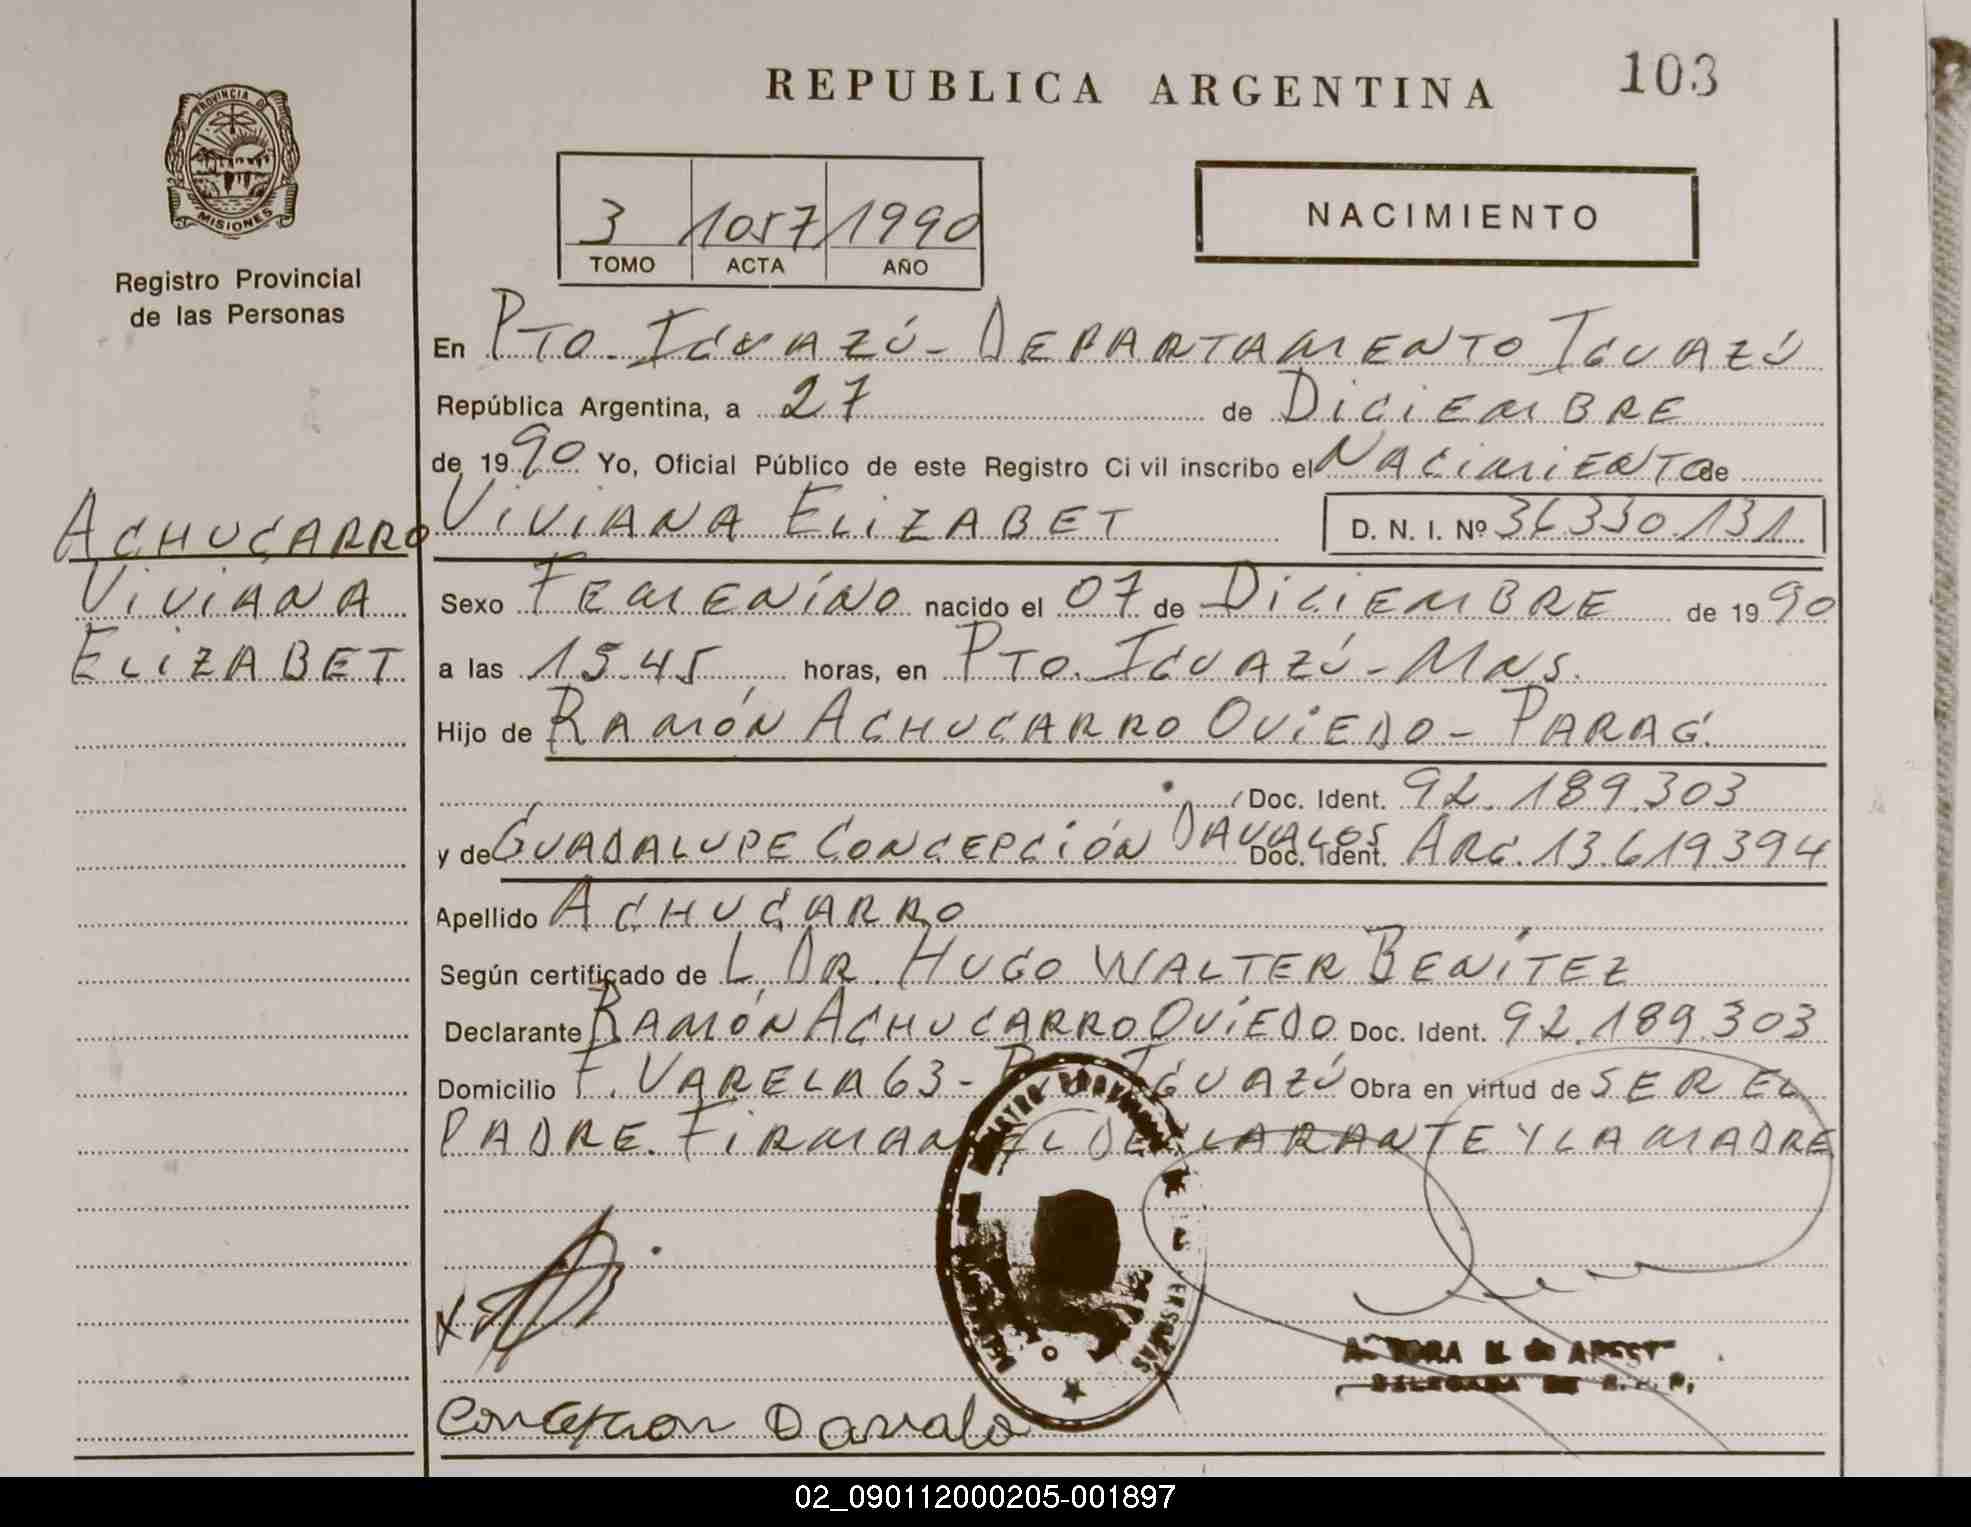 REPUBLICA ARGENTINA
103
PROVINCIA DE
MISIONES
Registro Provincial
de las Personas
3 1057 1990
TOMO ACTA AÑO
NACIMIENTO
En PTO. IGUAZÚ - DEPARTAMENTO IGUAZÚ
República Argentina, a 27 de DICIEMBRE
de 1990 Yo, Oficial Público de este Registro Civil inscribo el NACIMIENTO de
VIVIANA ELIZABET D. N. I. Nº 36.330.131
ACHUCARRO
VIVIANA
ELIZABET
Sexo FEMENINO nacido el 07 de DICIEMBRE de 1990
a las 15.45 horas, en PTO. IGUAZÚ - MNS.
Hijo de RAMÓN ACHUCARRO OVIEDO - PARAG.
Doc. Ident. 92.189.303
y de GUADALUPE CONCEPCIÓN DAVALOS Doc. Ident. ARG. 13.619.394
Apellido ACHUCARRO
Según certificado de L. DR. HUGO WALTER BENÍTEZ
Declarante RAMÓN ACHUCARRO OVIEDO Doc. Ident. 92.189.303
Domicilio F. VARELA 63 - PTO. IGUAZÚ Obra en virtud de SER EL
PADRE. FIRMAN EL DECLARANTE Y LA MADRE
DELEGADA
Concepcion Davalo
02_090112000205-001897